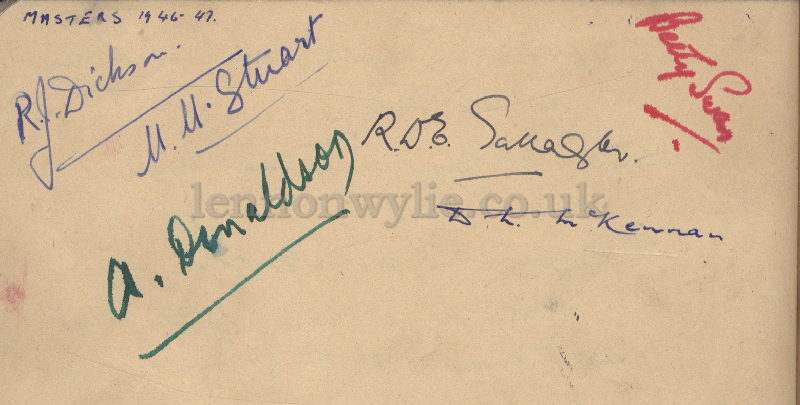 MASTERS 1946-47.
R.J. Dickson.
M. M. Stuart
Betty Swan
R.D.E. Gallagher.
A. Donaldson
lennonwylie.co.uk
D. L. McKennan